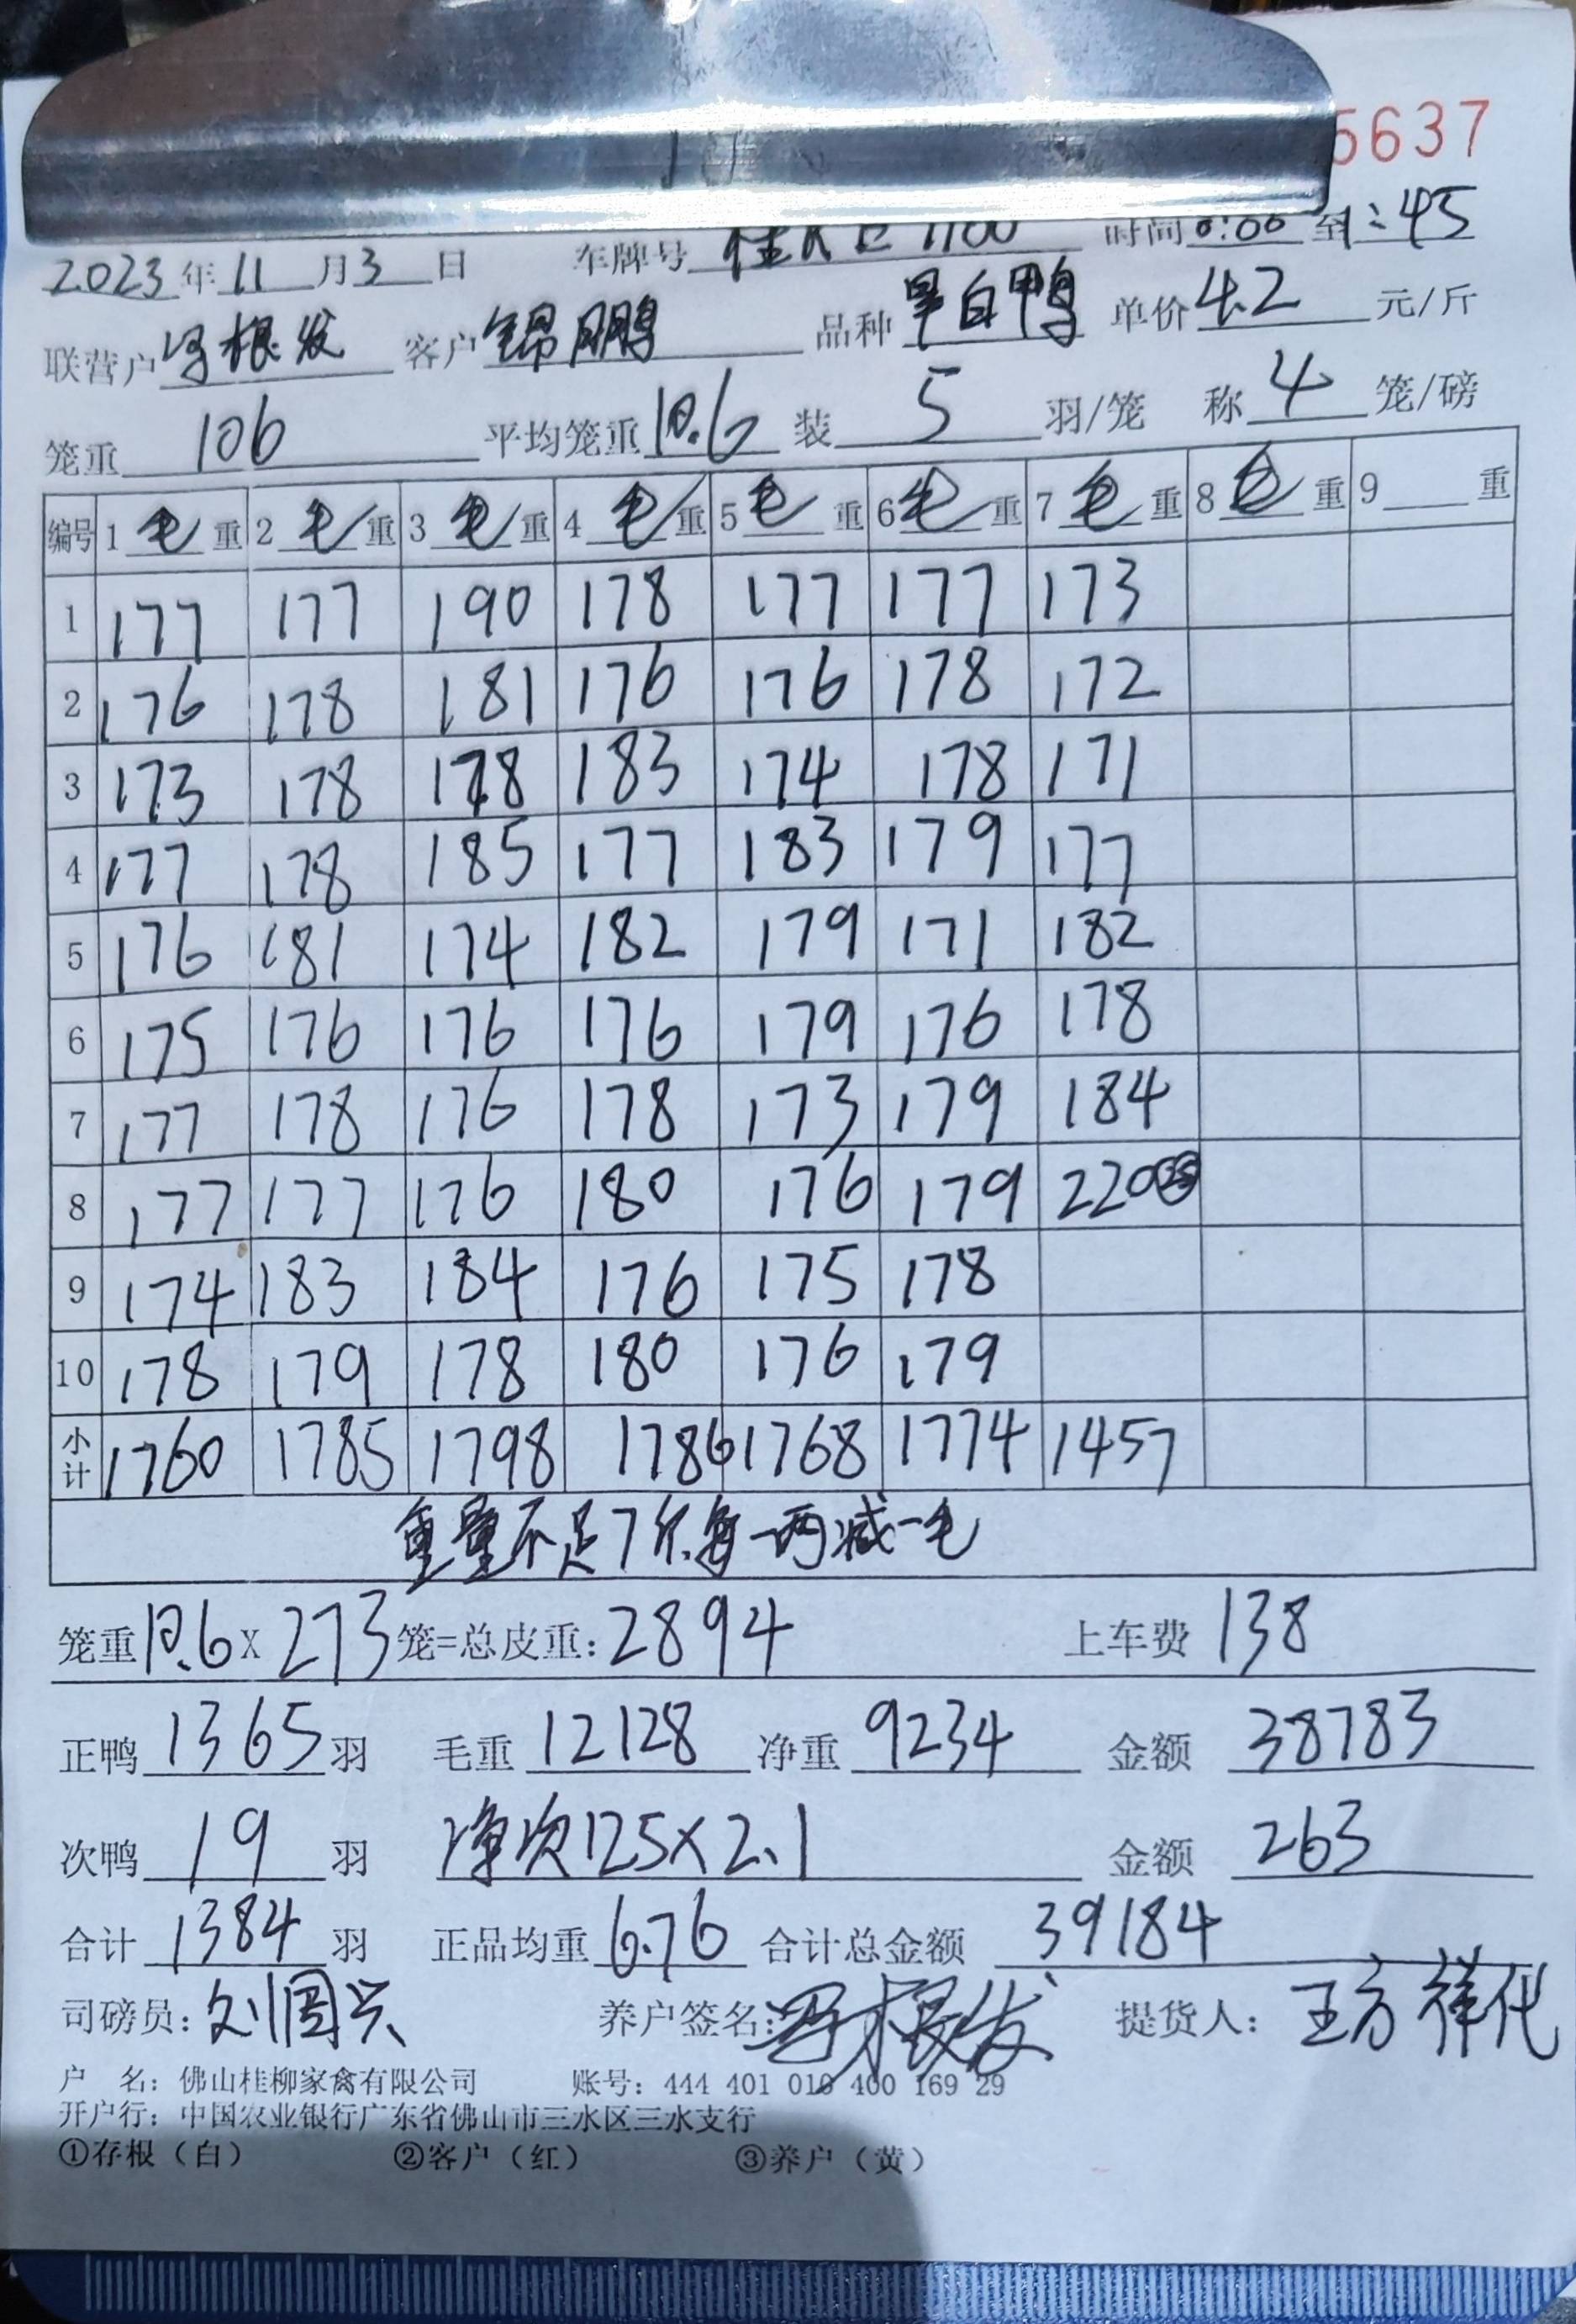 5637
2023年11月3日 车牌号 时间0:00至1:45
联营户冯根发 客户锦鹏 品种旱白鸭 单价4.2元/斤
笼重106 平均笼重10.6 装5羽/笼 称4笼/磅
编号 1毛重 2毛重 3毛重 4毛重 5毛重 6毛重 7毛重 8毛重 9 重
1 177 177 190 178 177 177 173
2 176 178 181 176 176 178 172
3 173 178 178 183 174 178 171
4 177 178 185 177 183 179 177
5 176 181 174 182 179 171 182
6 175 176 176 176 179 176 178
7 177 178 176 178 173 179 184
8 177 177 176 180 176 179 220
9 174 183 184 176 175 178
10 178 179 178 180 176 179
小计 1760 1785 1798 1786 1768 1774 1457
重量不足7斤每一两减一毛
笼重10.6X273笼=总皮重:2894 上车费138
正鸭1365羽 毛重12128 净重9234 金额38783
次鸭19羽 净次125×2.1 金额263
合计1384羽 正品均重6.76 合计总金额39184
司磅员:刘国兴 养户签名:冯根发 提货人:王方祥代
户 名:佛山桂柳家禽有限公司 账号:444 401 010 400 169 29
开户行:中国农业银行广东省佛山市三水区三水支行
①存根(白) ②客户(红) ③养户(黄)